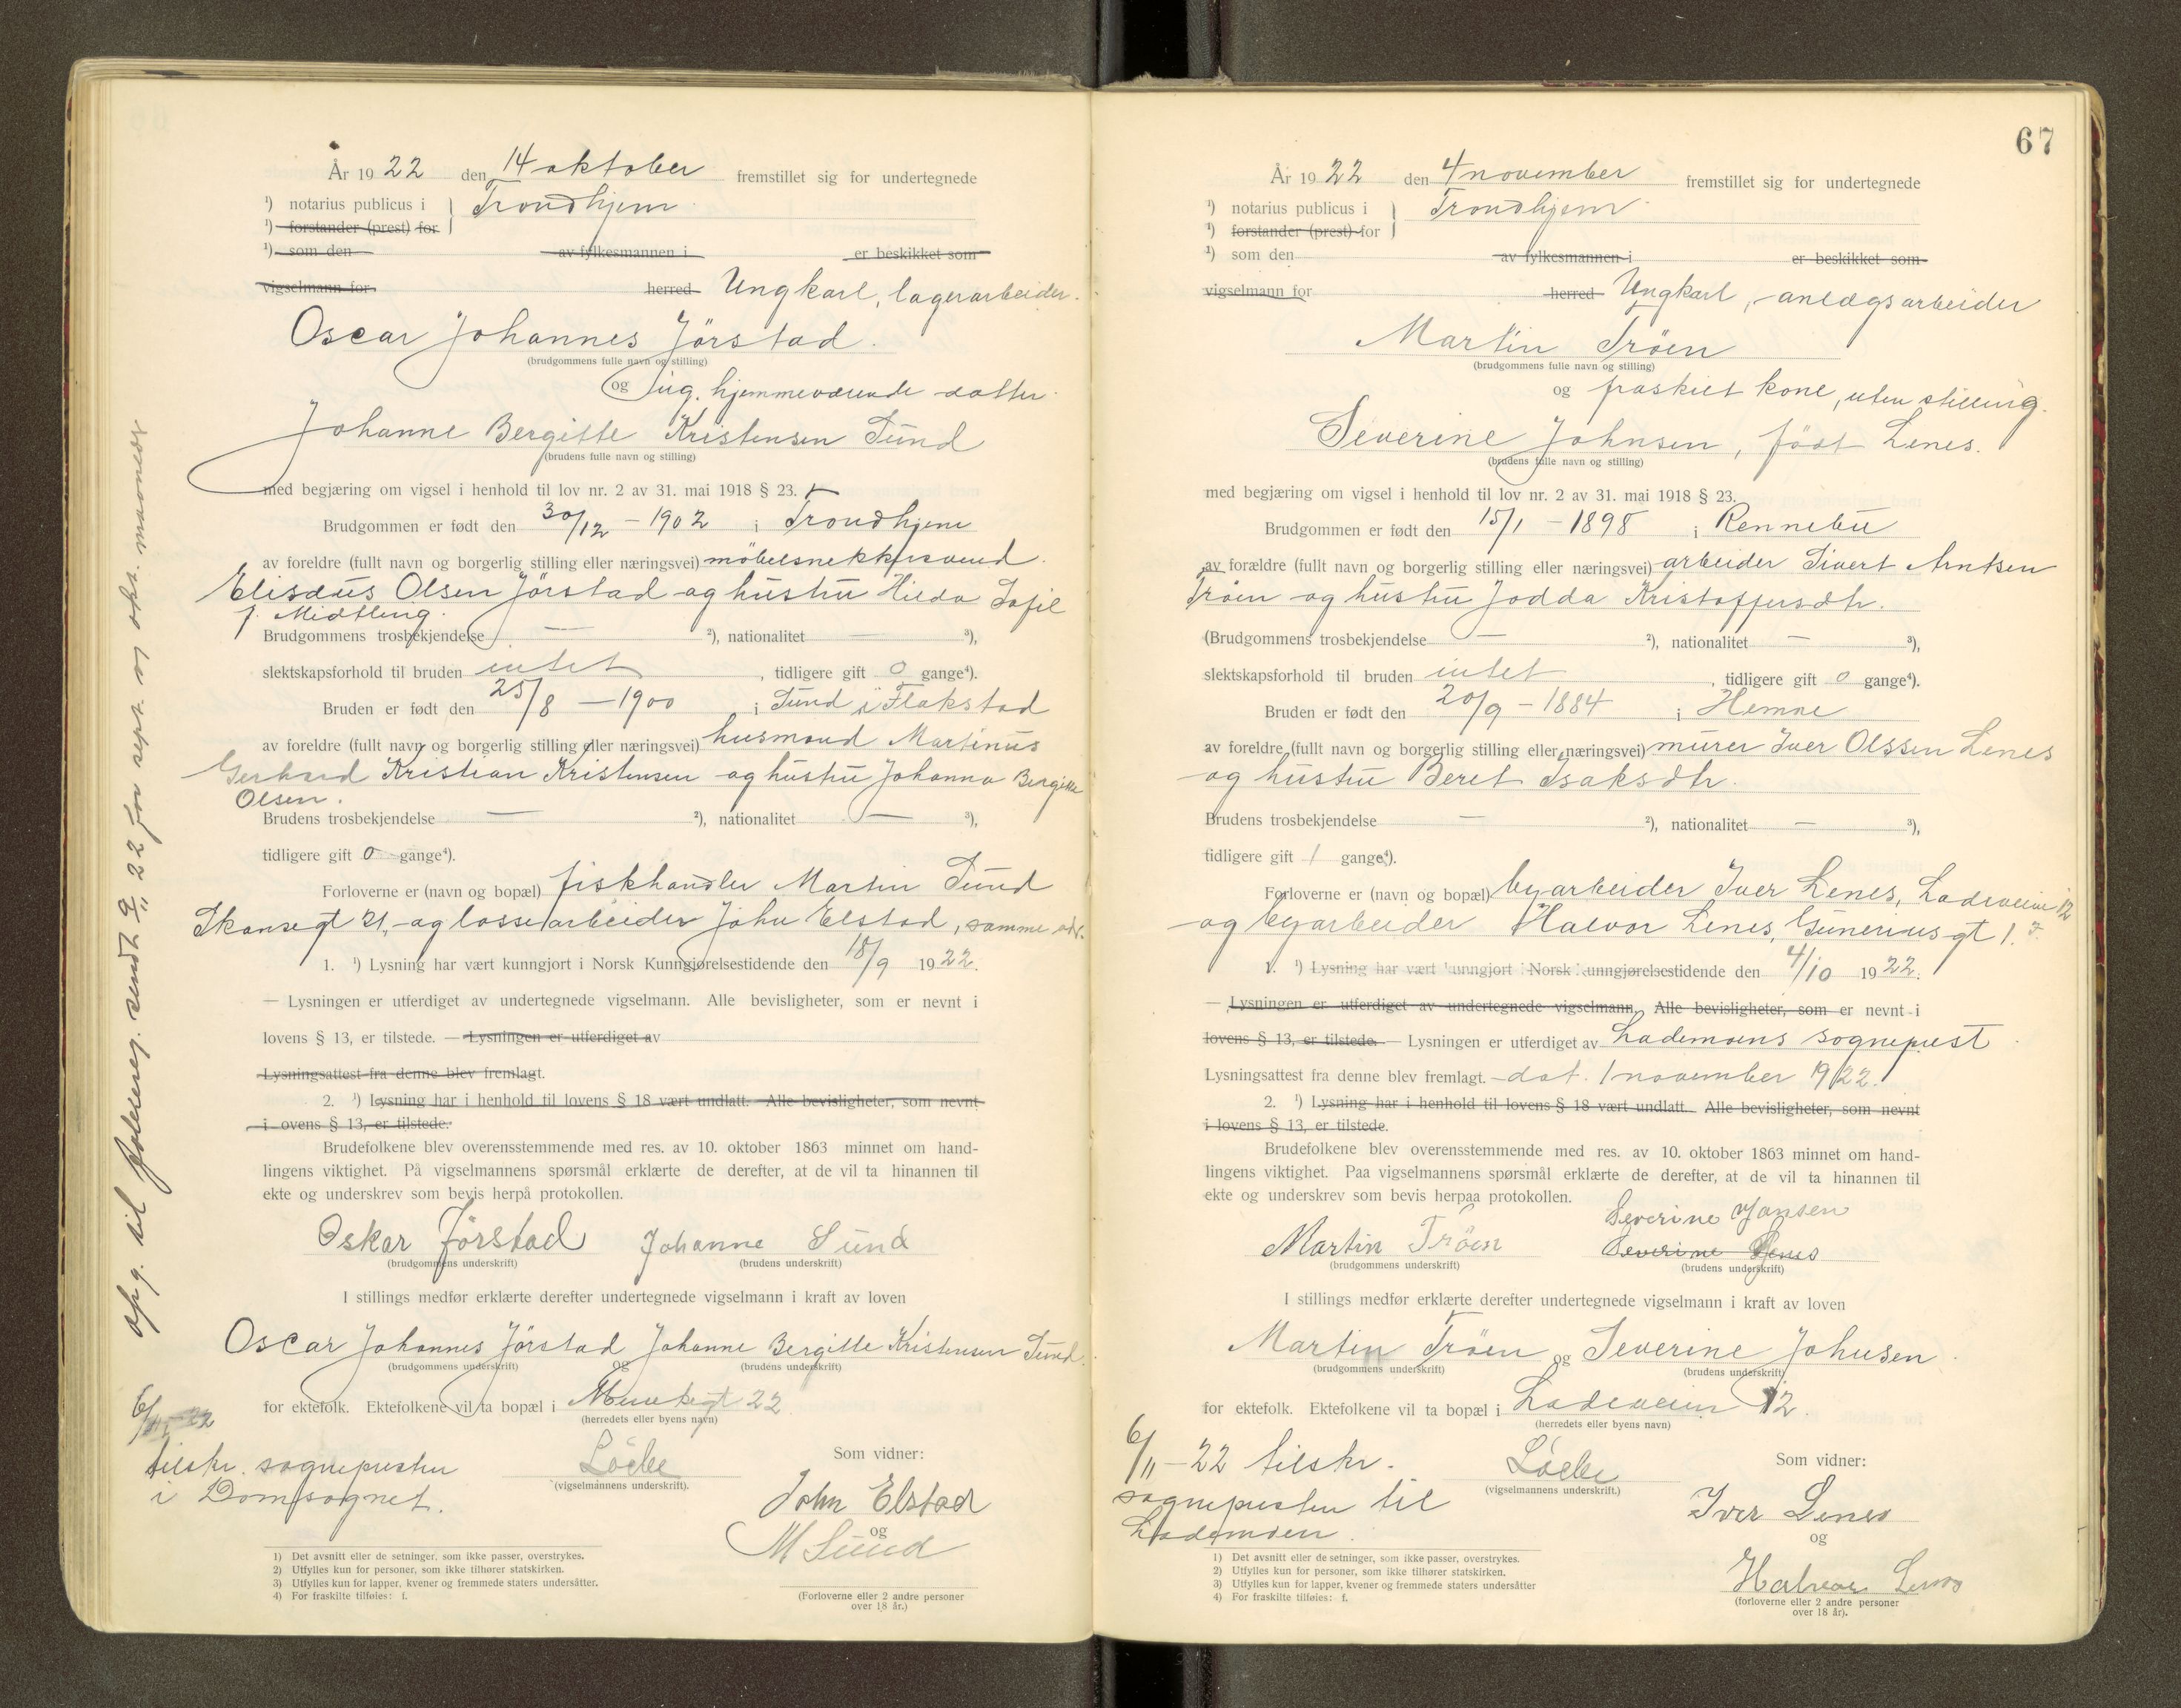 År 1922 den 14 oktober fremstillet sig for undertegnede
¹) notarius publicus i } Trondhjem
¹) forstander (prest) for
¹) som den av fylkesmannen i er beskikket som
vigselmann for herred Ungkarl, lagerarbeider.
Oscar Johannes Jörstad.
(brudgommens fulle navn og stilling)
og ug. hjemmeværende datter
Johanne Bergitte Kristensen Sund
(brudens fulle navn og stilling)
med begjæring om vigsel i henhold til lov nr. 2 av 31. mai 1918 § 23.
Brudgommen er født den 30/12 - 1902 i Trondhjem
av foreldre (fullt navn og borgerlig stilling eller næringsvei) möbelsnekkersvend
Elisæus Olsen Jörstad og hustru Hilda Sofie
f. Midtling.
Brudgommens trosbekjendelse — ²), nationalitet — ³),
slektskapsforhold til bruden intet, tidligere gift 0 gange⁴).
Bruden er født den 25/8 - 1900 i Sund i Flakstad
av foreldre (fullt navn og borgerlig stilling eller næringsvei) husmand Martinus
Gerhard Kristian Kristensen og hustru Johanna Bergitte
Olsen.
Brudens trosbekjendelse — ²), nationalitet — ³),
tidligere gift 0 gange⁴).
Forloverne er (navn og bopæl) fiskhandler Martin Sund
Skansegt 21, og lossearbeider John Elstad, samme adr.
1. ¹) Lysning har vært kunngjort i Norsk Kunngjørelsestidende den 18/9 1922.
— Lysningen er utferdiget av undertegnede vigselmann. Alle bevisligheter, som er nevnt i
lovens § 13, er tilstede. — Lysningen er utferdiget av
Lysningsattest fra denne blev fremlagt.
2. ¹) Lysning har i henhold til lovens § 18 vært undlatt. Alle bevisligheter, som nevnt
i lovens § 13, er tilstede.
Brudefolkene blev overensstemmende med res. av 10. oktober 1863 minnet om hand-
lingens viktighet. På vigselmannens spørsmål erklærte de derefter, at de vil ta hinannen til
ekte og underskrev som bevis herpå protokollen.
Oskar Jörstad Johanne Sund
(brudgommens underskrift) (brudens underskrift)
I stillings medfør erklærte derefter undertegnede vigselmann i kraft av loven
Oscar Johannes Jörstad og Johanne Bergitte Kristensen Sund.
(brudgommens underskrift) (brudens underskrift)
for ektefolk. Ektefolkene vil ta bopæl i Munkegt 22
(herredets eller byens navn)
6/11-22
tilskr. sognepresten
i Domsognet.
(vigselmannens underskrift).
Som vidner:
John Elstad
og
M Sund
(Forloverne eller 2 andre personer
over 18 år.)
1) Det avsnitt eller de setninger, som ikke passer, overstrykes.
2) Utfylles kun for personer, som ikke tilhører statskirken.
3) Utfylles kun for lapper, kvener og fremmede staters undersåtter.
4) For fraskilte tilføies: f.
opg. til folkereg. sendt 9/11 22 for sept. og okt. maaneder
67
År 1922 den 4 november fremstillet sig for undertegnede
¹) notarius publicus i } Trondhjem
¹) forstander (prest) for
¹) som den av fylkesmannen i er beskikket som
vigselmann for herred Ungkarl, anlægsarbeider
Martin Tröen
(brudgommens fulle navn og stilling)
og fraskilt kone, uten stilling.
Severine Johnsen, födt Lenes.
(brudens fulle navn og stilling)
med begjæring om vigsel i henhold til lov nr. 2 av 31. mai 1918 § 23.
Brudgommen er født den 15/1 - 1898 i Rennebu
av forældre (fullt navn og borgerlig stilling eller næringsvei) arbeider Sivert Arntsen
Tröen og hustru Jodda Kristoffersdtr.
(Brudgommens trosbekjendelse — ²), nationalitet — ³),
slektskapsforhold til bruden intet, tidligere gift 0 gange⁴).
Bruden er født den 20/9 - 1884 i Hemne
av foreldre (fullt navn og borgerlig stilling eller næringsvei) murer Iver Olssen Lenes
og hustru Beret Isaksdtr.
Brudens trosbekjendelse — ²), nationalitet — ³),
tidligere gift 1 gange⁴).
Forloverne er (navn og bopæl) byarbeider Iver Lenes, Ladeveien 12
og byarbeider Halvor Lenes, Gunerius gt 1.
1. ¹) Lysning har vært kunngjort i Norsk Kunngjørelsestidende den 4/10 1922.
— Lysningen er utferdiget av undertegnede vigselmann. Alle bevisligheter, som er nevnt i
lovens § 13, er tilstede. — Lysningen er utferdiget av Lademoens sogneprest
Lysningsattest fra denne blev fremlagt. dat. 1 november 1922.
2. ¹) Lysning har i henhold til lovens § 18 vært undlatt. Alle bevisligheter, som nevnt
i lovens § 13, er tilstede.
Brudefolkene blev overensstemmende med res. av 10. oktober 1863 minnet om hand-
lingens viktighet. Paa vigselmannens spørsmål erklærte de derefter, at de vil ta hinannen til
ekte og underskrev som bevis herpaa protokollen.
Severine Jonsen
Martin Tröen Severine Lenes
(brudgommens underskrift) (brudens underskrift)
I stillings medfør erklærte derefter undertegnede vigselmann i kraft av loven
Martin Tröen og Severine Johnsen
(brudgommens underskrift) (brudens underskrift)
for ektefolk. Ektefolkene vil ta bopæl i Ladeveien 12.
(herredets eller byens navn)
6/11-22 tilskr.
sognepresten til
Lademoen.
(vigselmannens underskrift.)
Som vidner:
Iver Lenes
og
Halvor Lenes
(forloverne eller 2 andre personer
over 18 år).
1) Det avsnitt eller de setninger, som ikke passer, overstrykes.
2) Utfylles kun for personer, som ikke tilhører statskirken.
3) Utfylles kun for lapper, kvener og fremmede staters undersåtter
4) For fraskilte tilføies: f.